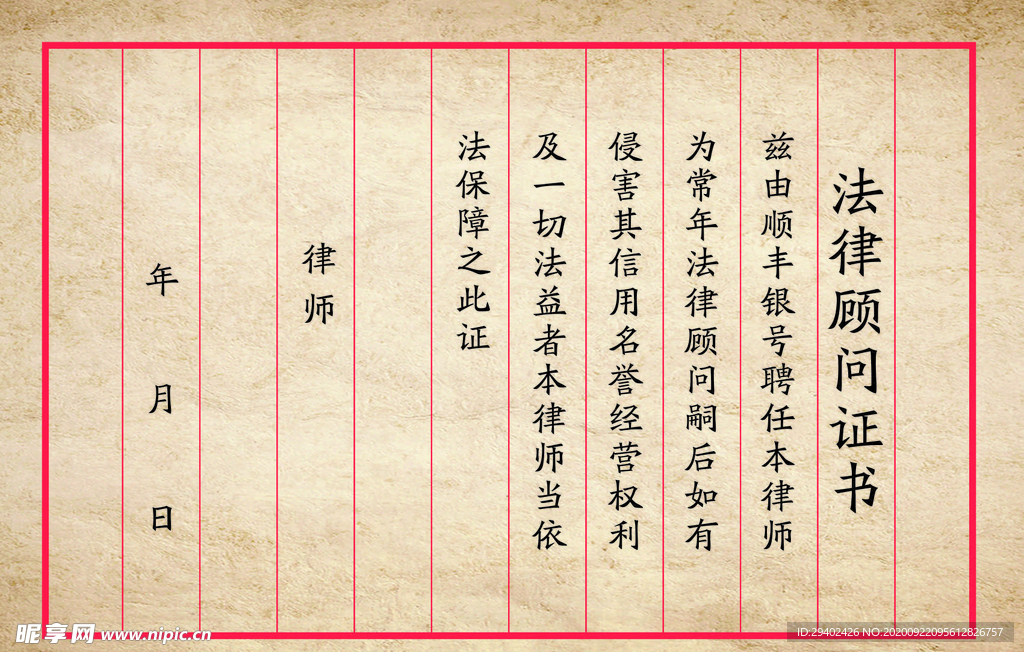 法律顾问证书
兹由顺丰银号聘任本律师
为常年法律顾问嗣后如有
侵害其信用名誉经营权利
及一切法益者本律师当依
法保障之此证
律师
年月日
昵享网 www.nipic.cn
ID:29402426 NO:20200922095612826757